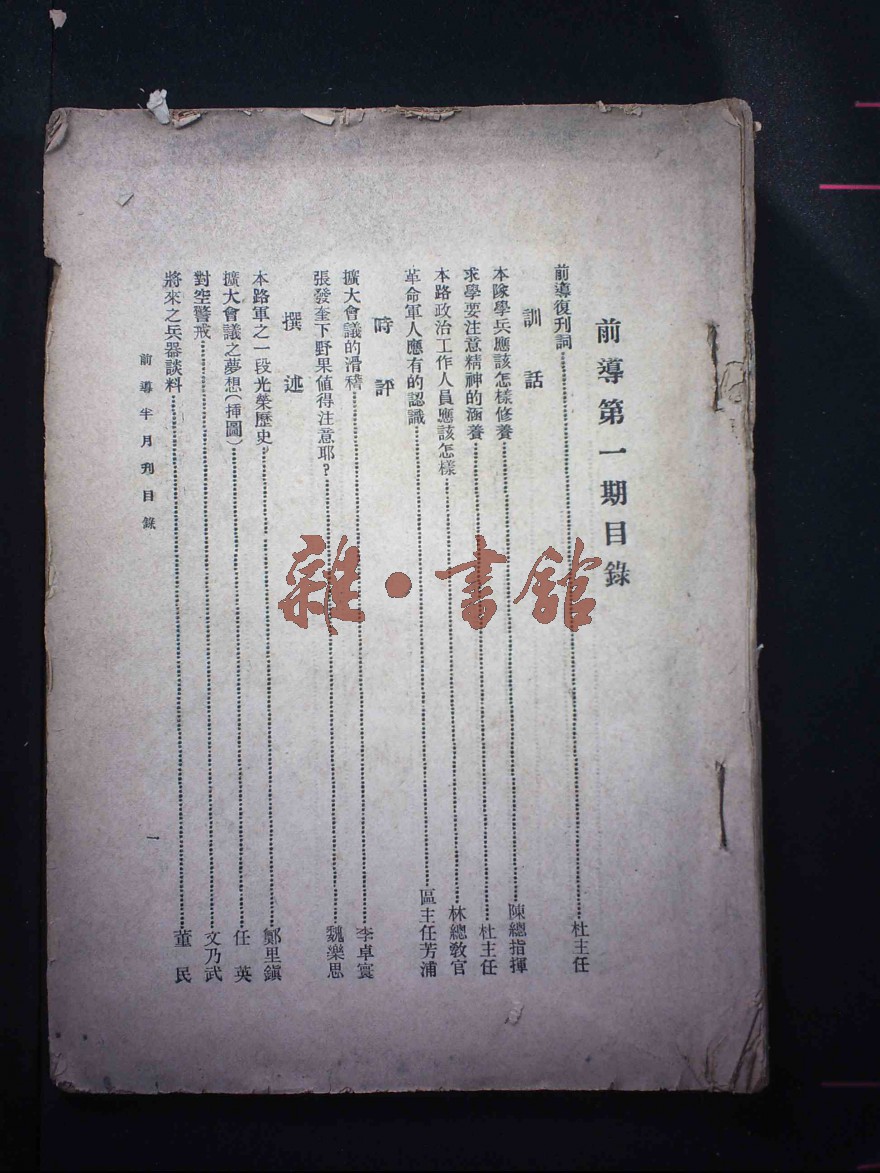 前導第一期目錄
前導復刊詞……杜主任
訓話
本隊學兵應該怎樣修養……陳總指揮
求學要注意精神的涵養……杜主任
本路政治工作人員應該怎樣……林總教官
革命軍人應有的認識……區主任芳浦
時評
擴大會議的滑稽……李卓寰
張發奎下野果值得注意耶？……魏樂思
撰述
本路軍之一段光榮歷史……鄭里鎮
擴大會議之夢想（揷圖）……任英
對空警戒……文乃武
將來之兵器談料……董民
前導半月刋目錄
一
雜·書館